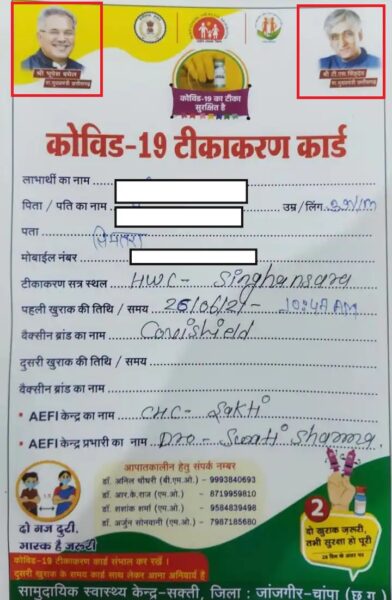 श्री भूपेश बघेल
मा. मुख्यमंत्री छत्तीसगढ़
श्री टी.एस. सिंहदेव
कोविड-19 का टीका
सुरक्षित है
कोविड-19 टीकाकरण कार्ड
लाभार्थी का नाम
पिता / पति का नाम उम्र / लिंग
पता
मोबाईल नंबर
टीकाकरण सत्र स्थल HWC- Singhansara
पहली खुराक की तिथि / समय 26/06/21- 10:48 AM
वैक्सीन ब्रांड का नाम Covishield
दुसरी खुराक की तिथि / समय
वैक्सीन ब्रांड का नाम
• AEFI केन्द्र का नाम CHC- Sakti
• AEFI केन्द्र प्रभारी का नाम Dro- Swati Sharma
आपातकालीन हेतु संपर्क नम्बर
डॉ. अनिल चौधरी (बी.एम.ओ.) - 9993840693
डॉ. आर.के.राज (एम.ओ.) - 8719959810
डॉ. शशांक शर्मा (एम.ओ.) - 9584839498
डॉ. अर्जुन सोनवानी (एम.ओ.) - 7987185680
दो गज दुरी,
मास्क है जरूरी
2
दो खुराक जरूरी,
तभी सुरक्षा हो पूरी
28 दिन के अंतर पर
कोविड-19 टीकाकरण कार्ड संभाल कर रखें।
दुसरी खुराक के समय कार्ड साथ लेकर आना अनिवार्य है
सामुदायिक स्वास्थ्य केन्द्र-सक्ती, जिला : जांजगीर-चांपा (छ.ग.)